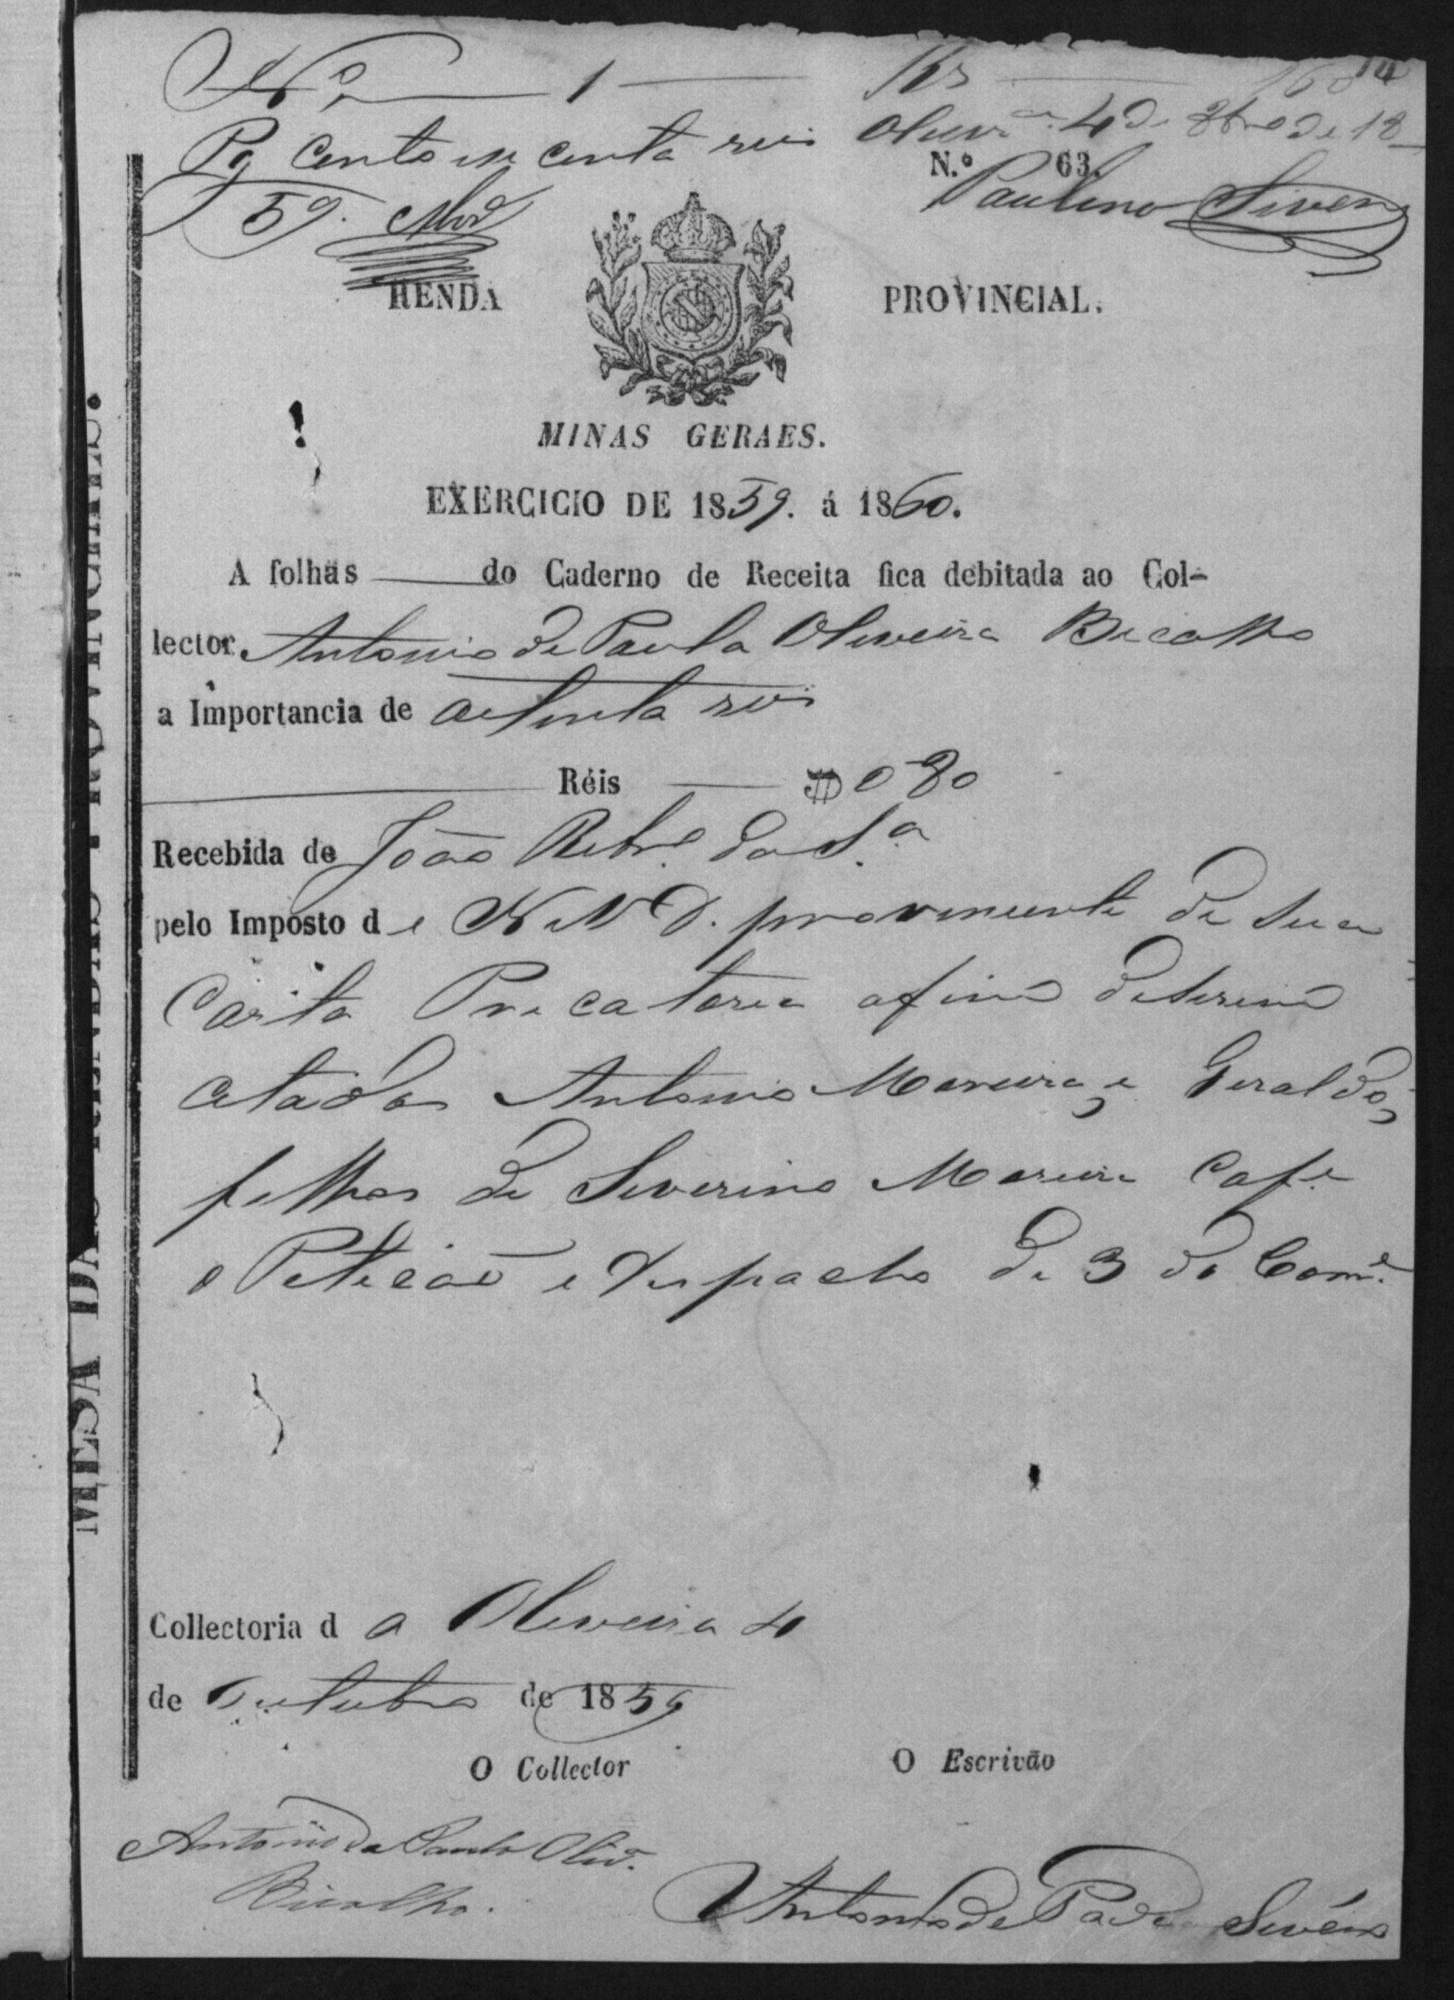 Nº 1 Rs 160 14
Pg cento e secenta reis Olivrª 4 de 8bro de 18
59. N.º 63. Paulino
RENDA PROVINCIAL.
MINAS GERAES.
EXERCICIO DE 1859. á 1860.
A folhas do Caderno de Receita fica debitada ao Col-
lector Antonio de Paula Oliveira Bicalho
a Importancia de oitenta reis
Réis $080
Recebida de João Ribrº da Sª
pelo Imposto de N e V D. proveniente de sua
Carta Precatoria afim de serem
citados Antonio Moreira, e Geraldo,
filhos de Severino Moreira Cafe
e Petição e Despacho de 3 do Corrº
Collectoria da Oliveira 4
de Outubro de 1859
O Collector O Escrivão
Antonio de Paula Olivrª
Bicalho.
Antonio de Padua
MESA DAS RENDAS PROVINCIAES.